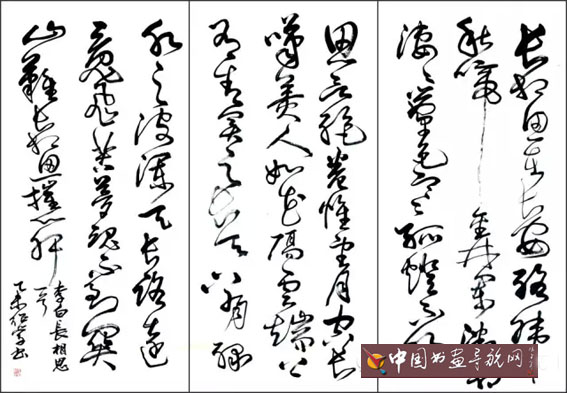 长相思在长安络纬
秋啼金井阑微霜
凄凄簟色寒孤灯不
思欲绝卷帷望月空长
叹美人如花隔云端上
有青冥之长天下有渌
水之波澜天长路远
魂飞苦梦魂不到关
山难长相思摧心肝
李白長相思
一首
乙未
中国书画导航网